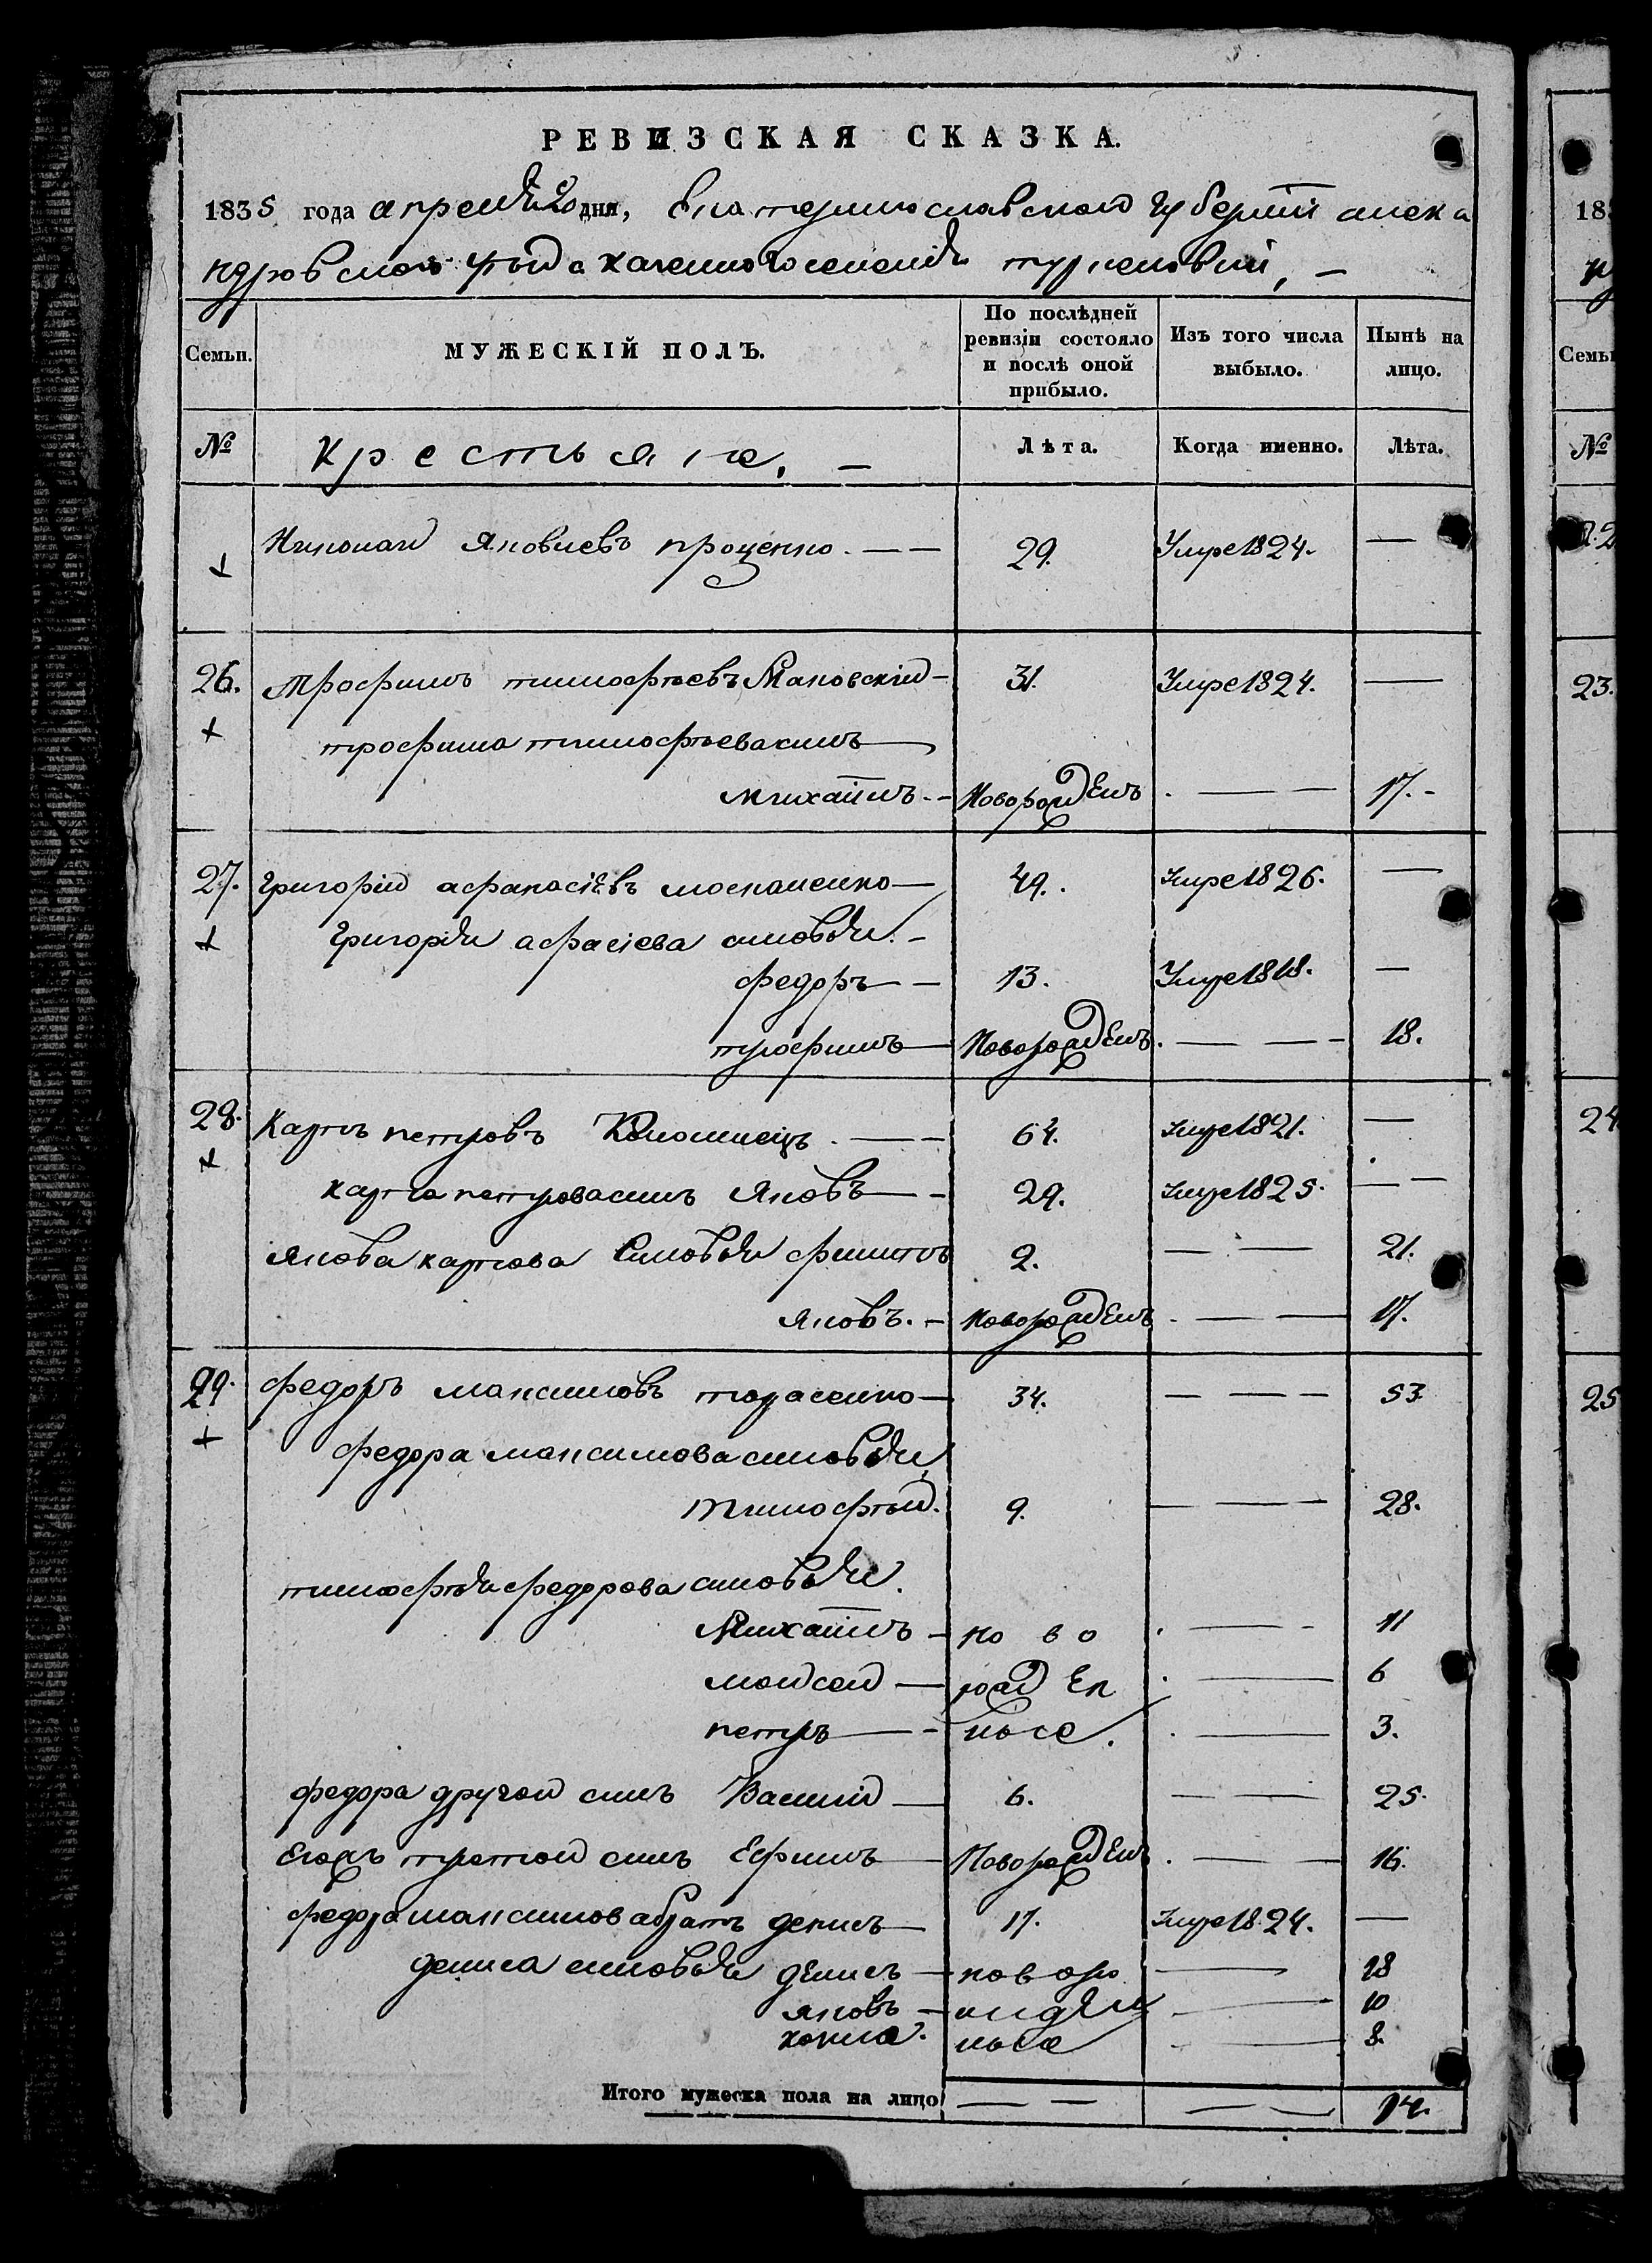 РЕВИЗСКАЯ СКАЗКА.
1835 года апреля 20 дня, Екатеринославской губернии алекса
ндровского уезда казенного селения туркеновки, —
Семьи. МУЖЕСКІЙ ПОЛЪ. По послѣдней ревизіи состояло и послѣ оной прибыло. Изъ того числа выбыло. Нынѣ на лицо.
№ крестьяне. — Лѣта. Когда именно. Лѣта.
Николай Яковлевъ проценко. — — 29. Умре 1824. —
26. Трофимъ тимофѣевъ Маковскій — 31. Умре 1824. —
трофима тимофѣева синъ
михаилъ. — Новорожденъ . — — 17. —
27. Григорій афанасіевъ москаленко — 49. Умре 1826. —
Григорія афасіева синовья. —
федоръ — — 13. Умре 1818. —
трофимъ — Новорожденъ. — — — 18.
28. Карпъ петровъ Коломиецъ. — — 64. Умре 1821. —
карпа петрова синъ Яковъ — — 29. Умре 1825. — —
Якова карпова Синовья филипъ 2. — — 21.
яковъ. — Новорожденъ . — — 17.
29. федоръ максимовъ тарасенко — 34. — — — 53
федора максимова синовья
Тимофѣй. 9. — — — 28.
тимофѣя федорова синовья.
Михаилъ — но во . — — 11
мойсей — рожд ен . — 6
петръ — — ные. . — 3.
федора другой синъ Василий — 6. — — — 25.
Егожъ третой синъ Ефимъ — Новорожденъ . — — 16.
федора максимова братъ денисъ — 17. Умре 1824. —
дениса синовья денисъ — новоро — 18
яковъ — жден — 10
хома. ные — 8.
Итого мужеска пола на лицо — — — — 14.